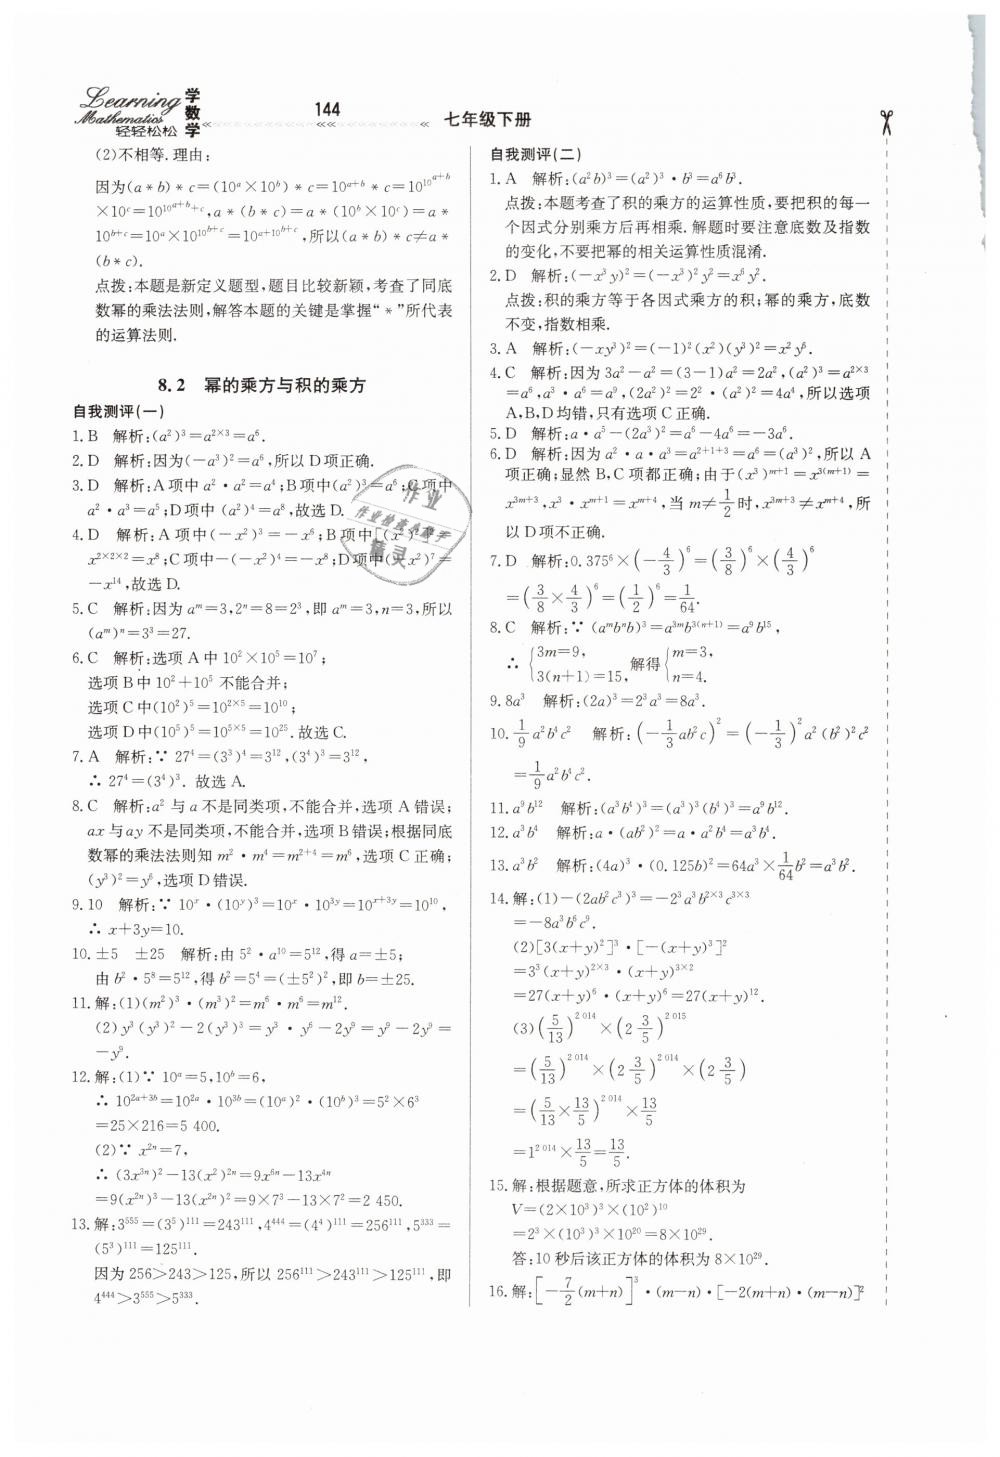 Learning
Mathematics
轻轻松松
学数学
144
七年级下册
(2)不相等.理由:
因为(a*b)*c=(10ᵃ×10ᵇ)*c=10ᵃ⁺ᵇ*c=10^(10^(a+b))
×10ᶜ=10^(10^(a+b)+c),a*(b*c)=a*(10ᵇ×10ᶜ)=a*
10ᵇ⁺ᶜ=10ᵃ×10^(10^(b+c))=10^(a+10^(b+c)),所以(a*b)*c≠a*
(b*c).
点拨:本题是新定义题型,题目比较新颖,考查了同底
数幂的乘法法则,解答本题的关键是掌握“*”所代表
的运算法则.
8.2 幂的乘方与积的乘方
自我测评(一)
1.B 解析:(a²)³=a²ˣ³=a⁶.
2.D 解析:因为(-a³)²=a⁶,所以D项正确.
3.D 解析:A项中a²·a²=a⁴;B项中(a²)³=a⁶;C项中
a²·a³=a⁵;D项中(a²)⁴=a⁸,故选D.
4.D 解析:A项中(-x²)³=-x⁶;B项中[(x²)²]²=
x²ˣ²ˣ²=x⁸;C项中-(-x²)⁴=-x⁸;D项中(-x²)⁷=
-x¹⁴,故选D.
5.C 解析:因为aᵐ=3,2ⁿ=8=2³,即aᵐ=3,n=3,所以
(aᵐ)ⁿ=3³=27.
6.C 解析:选项A中10²×10⁵=10⁷;
选项B中10²+10⁵不能合并;
选项C中(10²)⁵=10²ˣ⁵=10¹⁰;
选项D中(10⁵)⁵=10⁵ˣ⁵=10²⁵.故选C.
7.A 解析:∵27⁴=(3³)⁴=3¹²,(3⁴)³=3¹²,
∴27⁴=(3⁴)³.故选A.
8.C 解析:a²与a不是同类项,不能合并,选项A错误;
ax与ay不是同类项,不能合并,选项B错误;根据同底
数幂的乘法法则知m²·m⁴=m²⁺⁴=m⁶,选项C正确;
(y³)²=y⁶,选项D错误.
9.10 解析:∵10ˣ·(10ʸ)³=10ˣ·10³ʸ=10ˣ⁺³ʸ=10¹⁰,
∴x+3y=10.
10.±5 ±25 解析:由5²·a¹⁰=5¹²,得a=±5;
由b²·5⁸=5¹²,得b²=5⁴=(±5²)²,即b=±25.
11.解:(1)(m²)³·(m³)²=m⁶·m⁶=m¹².
(2)y³(y³)²-2(y³)³=y³·y⁶-2y⁹=y⁹-2y⁹=
-y⁹.
12.解:(1)∵10ᵃ=5,10ᵇ=6,
∴10²ᵃ⁺³ᵇ=10²ᵃ·10³ᵇ=(10ᵃ)²·(10ᵇ)³=5²×6³
=25×216=5 400.
(2)∵x²ⁿ=7,
∴(3x³ⁿ)²-13(x²)²ⁿ=9x⁶ⁿ-13x⁴ⁿ
=9(x²ⁿ)³-13(x²ⁿ)²=9×7³-13×7²=2 450.
13.解:3⁵⁵⁵=(3⁵)¹¹¹=243¹¹¹,4⁴⁴⁴=(4⁴)¹¹¹=256¹¹¹,5³³³=
(5³)¹¹¹=125¹¹¹.
因为256>243>125,所以256¹¹¹>243¹¹¹>125¹¹¹,即
4⁴⁴⁴>3⁵⁵⁵>5³³³.
自我测评(二)
1.A 解析:(a²b)³=(a²)³·b³=a⁶b³.
点拨:本题考查了积的乘方的运算性质,要把积的每一
个因式分别乘方后再相乘.解题时要注意底数及指数
的变化,不要把幂的相关运算性质混淆.
2.D 解析:(-x³y)²=(-x³)²y²=x⁶y².
点拨:积的乘方等于各因式乘方的积;幂的乘方,底数
不变,指数相乘.
3.A 解析:(-xy³)²=(-1)²(x²)(y³)²=x²y⁶.
4.C 解析:因为3a²-a²=(3-1)a²=2a²,(a²)³=a²ˣ³
=a⁶,a³·a⁶=a⁹,(2a²)²=2²·(a²)²=4a⁴,所以选项
A,B,D均错,只有选项C正确.
5.D 解析:a·a⁵-(2a³)²=a⁶-4a⁶=-3a⁶.
6.D 解析:因为a²·a·a³=a²⁺¹⁺³=a⁶=(a³)²,所以A
项正确;显然B,C项都正确;由于(x³)ᵐ⁺¹=x³⁽ᵐ⁺¹⁾=
x³ᵐ⁺³,x³·xᵐ⁺¹=xᵐ⁺⁴,当m≠1/2时,x³ᵐ⁺³≠xᵐ⁺⁴,所
以D项不正确.
7.D 解析:0.375⁶×(-4/3)⁶=(3/8)⁶×(4/3)⁶
=(3/8×4/3)⁶=(1/2)⁶=1/64.
8.C 解析:∵(aᵐbⁿb)³=a³ᵐb³⁽ⁿ⁺¹⁾=a⁹b¹⁵,
∴{3m=9, 3(n+1)=15, 解得{m=3, n=4.
9.8a³ 解析:(2a)³=2³a³=8a³.
10.1/9a²b⁴c² 解析:(-1/3ab²c)²=(-1/3)²a²(b²)²c²
=1/9a²b⁴c².
11.a⁹b¹² 解析:(a³b⁴)³=(a³)³(b⁴)³=a⁹b¹².
12.a³b⁴ 解析:a·(ab²)²=a·a²b⁴=a³b⁴.
13.a³b² 解析:(4a)³·(0.125b)²=64a³×1/64b²=a³b².
14.解:(1)-(2ab²c³)³=-2³a³b²ˣ³c³ˣ³
=-8a³b⁶c⁹.
(2)[3(x+y)²]³·[-(x+y)³]²
=3³(x+y)²ˣ³·(x+y)³ˣ²
=27(x+y)⁶·(x+y)⁶=27(x+y)¹².
(3)(5/13)²⁰¹⁴×(2 3/5)²⁰¹⁵
=(5/13)²⁰¹⁴×(2 3/5)²⁰¹⁴×(2 3/5)
=(5/13×13/5)²⁰¹⁴×13/5
=1²⁰¹⁴×13/5=13/5.
15.解:根据题意,所求正方体的体积为
V=(2×10³)³×(10²)¹⁰
=2³×(10³)³×10²⁰=8×10²⁹.
答:10秒后该正方体的体积为8×10²⁹.
16.解:[-7/2(m+n)]³·(m-n)·[-2(m+n)·(m-n)]²